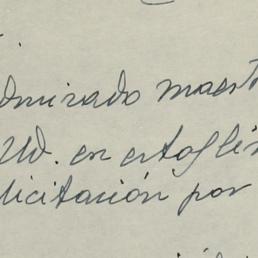 dmirado maest
Ud. en estas lín
licitación por